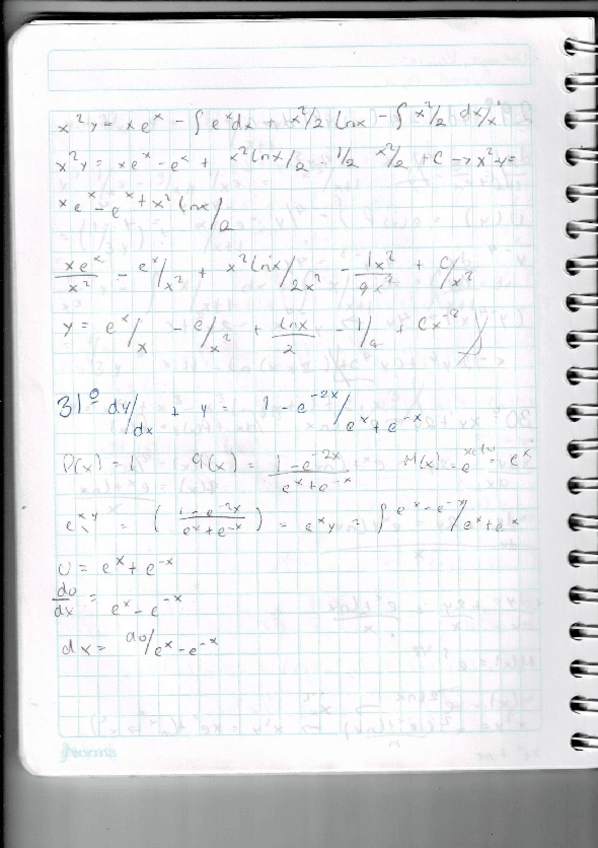 x²y = xeˣ - ∫ eˣdx + x²/2 lnx - ∫ x²/2 dx/x
x²y = xeˣ - eˣ + x²lnx/2 - 1/2 x²/2 + C → x²y =
xeˣ - eˣ + x² lnx/2
xeˣ/x² - eˣ/x² + x²lnx/2x² - 1x²/4x² + C/x²
y = eˣ/x - e/x² + lnx/2 - 1/4 + Cx⁻²
31º dy/dx + y = 1 - e⁻²ˣ/eˣ + e⁻ˣ
P(x) = 1 q(x) = 1 - e⁻²ˣ/eˣ + e⁻ˣ eˣ
eˣy = (1 - e⁻²ˣ/eˣ + e⁻ˣ) = eˣy = ∫ eˣ - e⁻ˣ/eˣ + e⁻ˣ
U = eˣ + e⁻ˣ
du/dx = eˣ - e⁻ˣ
dx = du/eˣ - e⁻ˣ
Norma